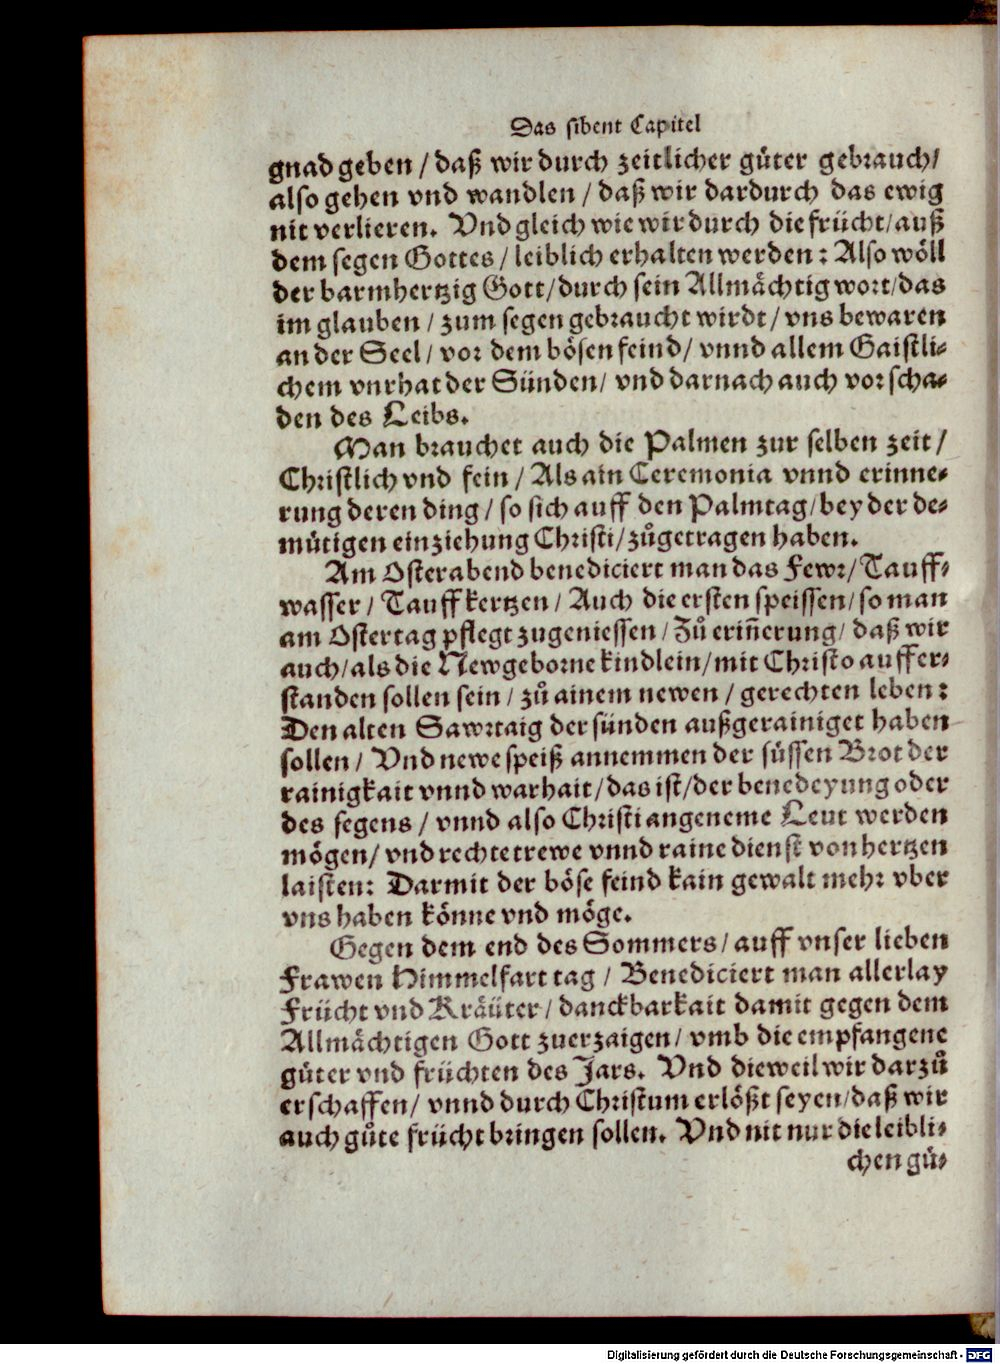 Das sibent Capitel
gnad geben / daß wir durch zeitlicher guͤter gebrauch/
also gehen vnd wandlen / daß wir dardurch das ewig
nit verlieren. Vnd gleich wie wir durch die frücht/auß
dem segen Gottes / leiblich erhalten werden : Also wöll
der barmhertzig Gott/durch sein Allmächtig wort/das
im glauben / zum segen gebraucht wirdt / vns bewaren
an der Seel / vor dem bösen feind/ vnnd allem Gaistli-
chem vnrhat der Sünden/ vnd darnach auch vor scha-
den des Leibs.
Man brauchet auch die Palmen zur selben zeit /
Christlich vnd fein / Als ain Ceremonia vnnd erinne-
rung deren ding / so sich auff den Palmtag/bey der de-
muͤtigen einziehung Christi/zuͦgetragen haben.
Am Osterabend benediciert man das Fewr/ Tauff-
wasser / Tauffkertzen / Auch die ersten speissen/ so man
am Ostertag pflegt zugeniessen / Zuͦ erin̄erung/ daß wir
auch/als die Newgeborne kindlein/mit Christo auffer-
standen sollen sein / zuͦ ainem newen / gerechten leben :
Den alten Sawrtaig der sünden außgerainiget haben
sollen / Vnd newe speiß annemmen der süssen Brot der
rainigkait vnnd warhait/das ist/der benedeyung oder
des segens / vnnd also Christi angeneme Leut werden
mögen/ vnd rechte trewe vnnd raine dienst von hertzen
laisten: Darmit der böse feind kain gewalt mehr vber
vns haben könne vnd möge.
Gegen dem end des Sommers/ auff vnser lieben
Frawen Himmelfart tag / Benediciert man allerlay
Frücht vnd Kräüter/ danckbarkait damit gegen dem
Allmächtigen Gott zuerzaigen/ vmb die empfangene
güter vnd früchten des Jars. Vnd dieweil wir darzuͦ
erschaffen/ vnnd durch Christum erlößt seyen/daß wir
auch guͦte frücht bringen sollen. Vnd nit nur die leibli-
chen guͤ-
Digitalisierung gefördert durch die Deutsche Forschungsgemeinschaft - DFG